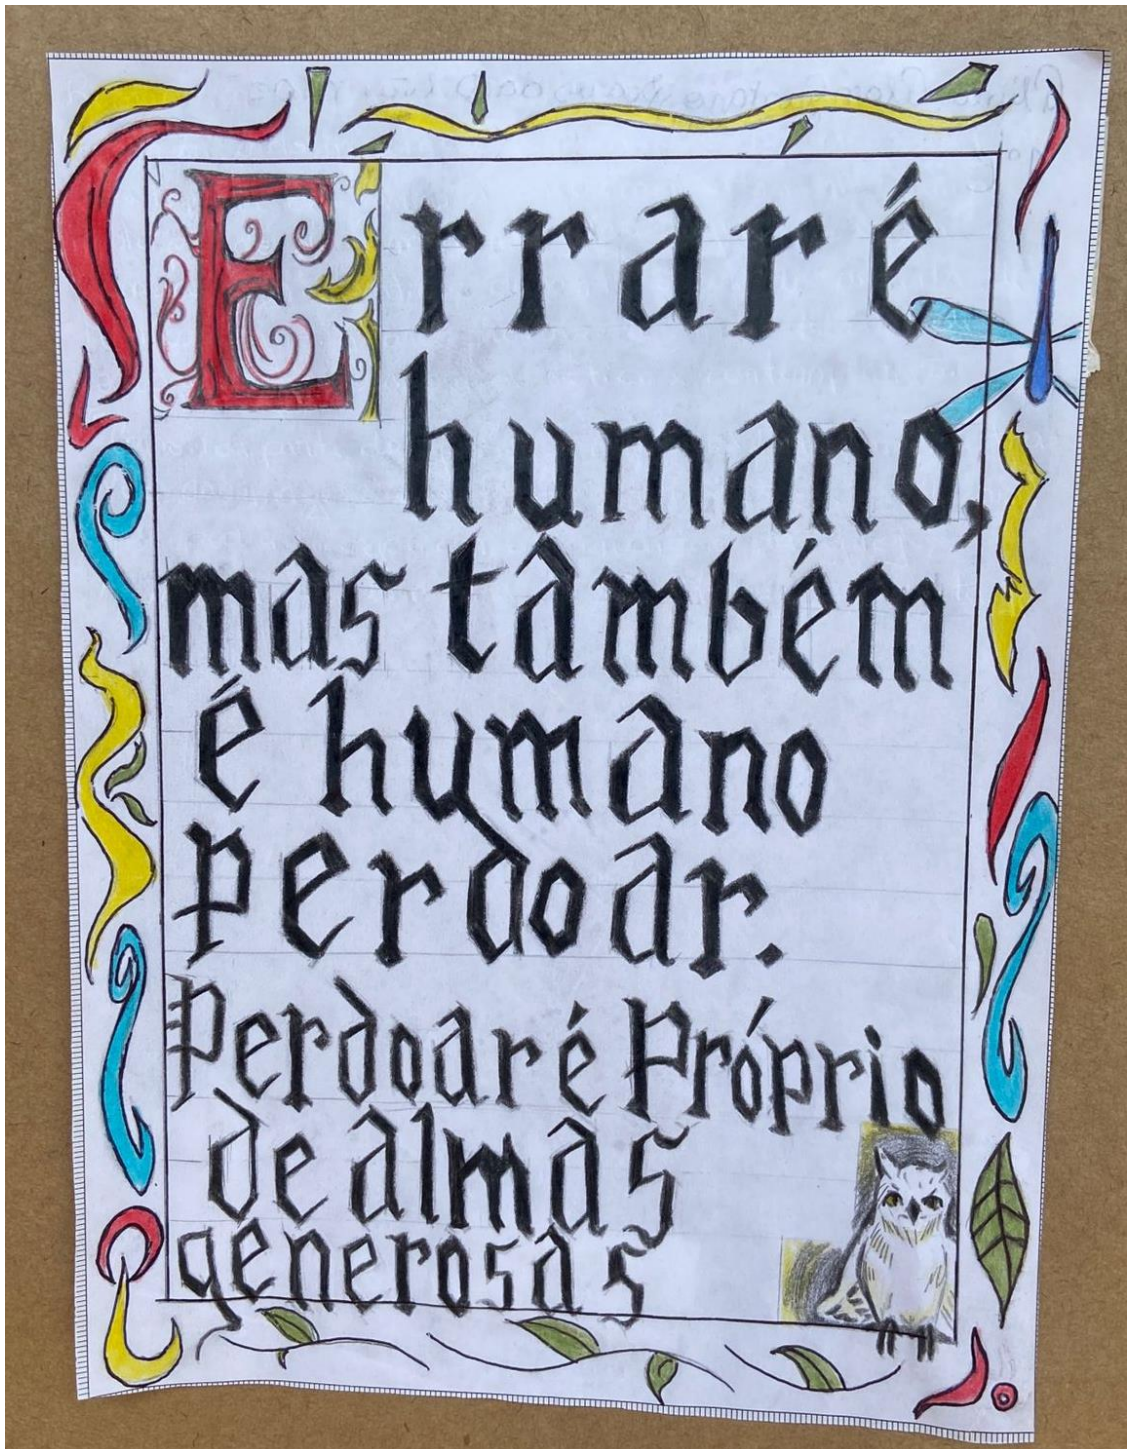 Errar é
humano,
mas também
é humano
perdoar.
Perdoar é Próprio
de almas
generosas